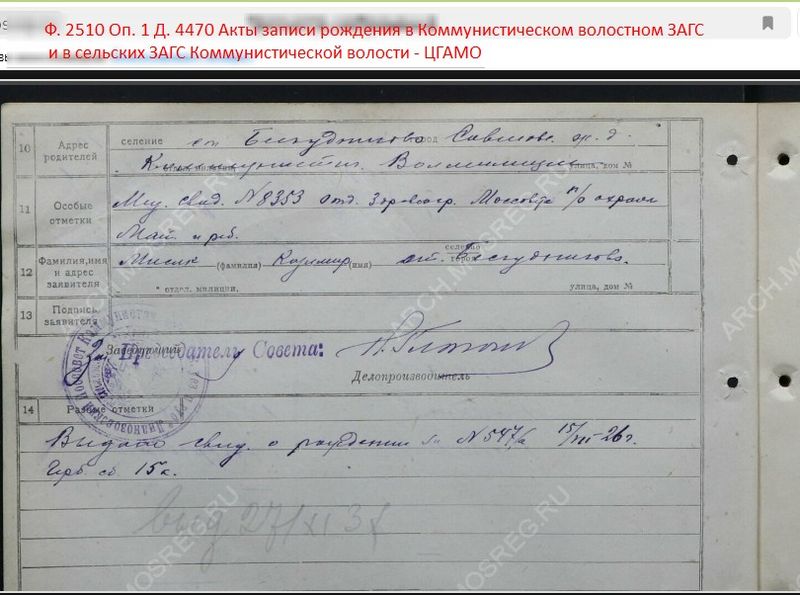 Ф. 2510 Оп. 1 Д. 4470 Акты записи рождения в Коммунистическом волостном ЗАГС
и в сельских ЗАГС Коммунистической волости - ЦГАМО
10 Адрес родителей селение ст Бескудниково город Савеловс. ж. д.
улица, дом №
11 Особые отметки Мед. свид. № 8353 отд. Здравоохр. Моссовета п/о охраны
Мат. и реб.
12 Фамилия, имя и адрес заявителя Мисяк (фамилия) Казимир (имя) селение город ст. Бескудниково.
" отдел. милиции, улица, дом №
13 Подпись заявителя
Заведующий Председатель Совета:
Делопроизводитель
14 Разные отметки
Выдано свид. о рождении за № 547/а 15/III-26г.
Герб. сб. 15к.
выд 27/XI 37
ARCH.MOSREG.RU